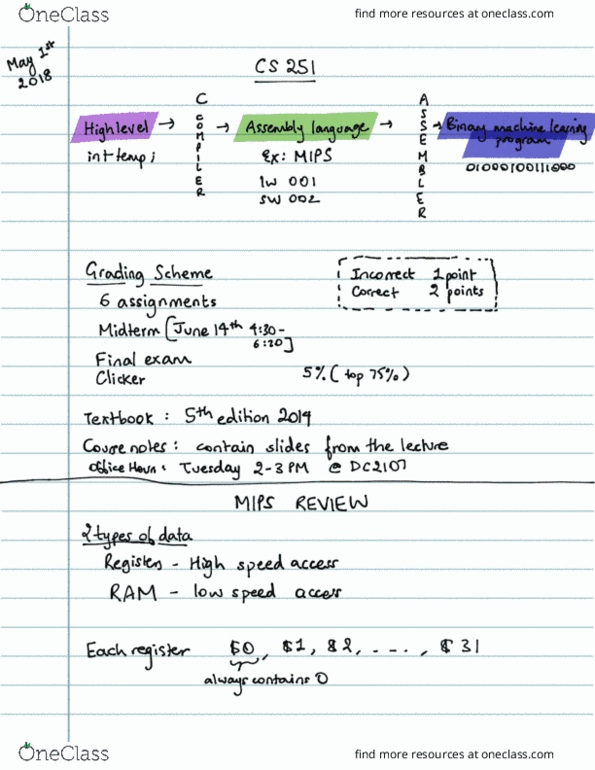 OneClass
find more resources at oneclass.com
May 1st
2018
CS 251
High level → C COMPILER → Assembly language → ASSEMBLER → Binary machine learning
program
int temp;
Ex: MIPS
01000100111000
lw 001
sw 002
Grading Scheme
Incorrect 1 point
Correct 2 points
6 assignments
Midterm [June 14th 4:30-
6:20]
Final exam
Clicker 5% (top 75%)
Textbook: 5th edition 2014
Course notes: contain slides from the lecture
Office Hours: Tuesday 2-3 PM @ DC2107
MIPS REVIEW
2 types of data
Registers - High speed access
RAM - low speed access
Each register $0, $1, $2, - - - ., $31
always contains 0
OneClass
find more resources at oneclass.com